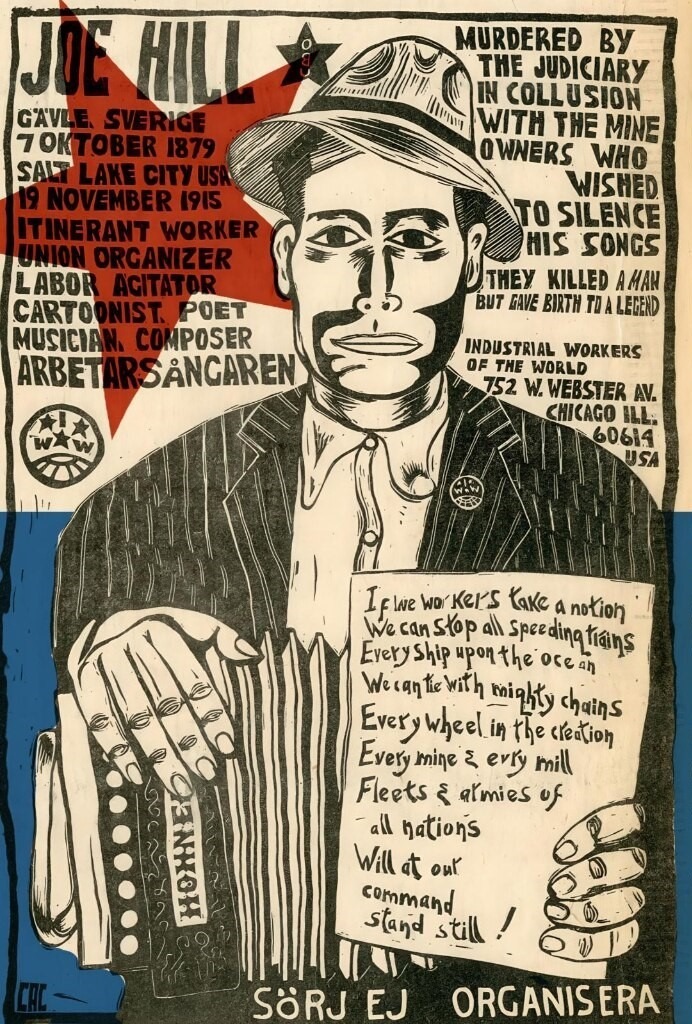 JOE HILL
OBU
GÄVLE, SVERIGE
7 OKTOBER 1879
SALT LAKE CITY USA
19 NOVEMBER 1915
ITINERANT WORKER
UNION ORGANIZER
LABOR AGITATOR
CARTOONIST, POET
MUSICIAN, COMPOSER
ARBETARSÅNGAREN
IWW
MURDERED BY
THE JUDICIARY
IN COLLUSION
WITH THE MINE
OWNERS WHO
WISHED
TO SILENCE
HIS SONGS
THEY KILLED A MAN
BUT GAVE BIRTH TO A LEGEND
INDUSTRIAL WORKERS
OF THE WORLD
752 W. WEBSTER AV.
CHICAGO ILL.
60614
USA
IWW
If we workers take a notion
We can stop all speeding trains
Every ship upon the ocean
We can tie with mighty chains
Every wheel in the creation
Every mine & evry mill
Fleets & armies of
all nations
Will at our
command
stand still!
HOHNER
CAC
SÖRJ EJ ORGANISERA